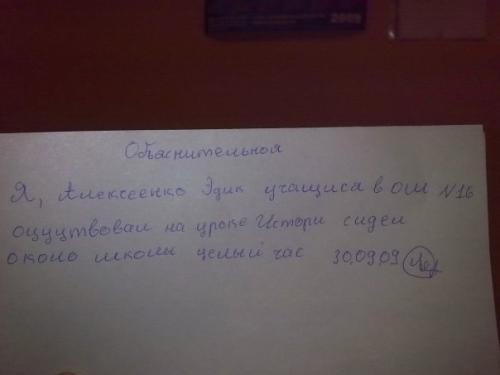 2009
Объяснительная
Я, Алексеенко Эдик учащиса в ОШ №16
оцуцтвовал на уроке Истори сидел
около школы целый час 30,09,09